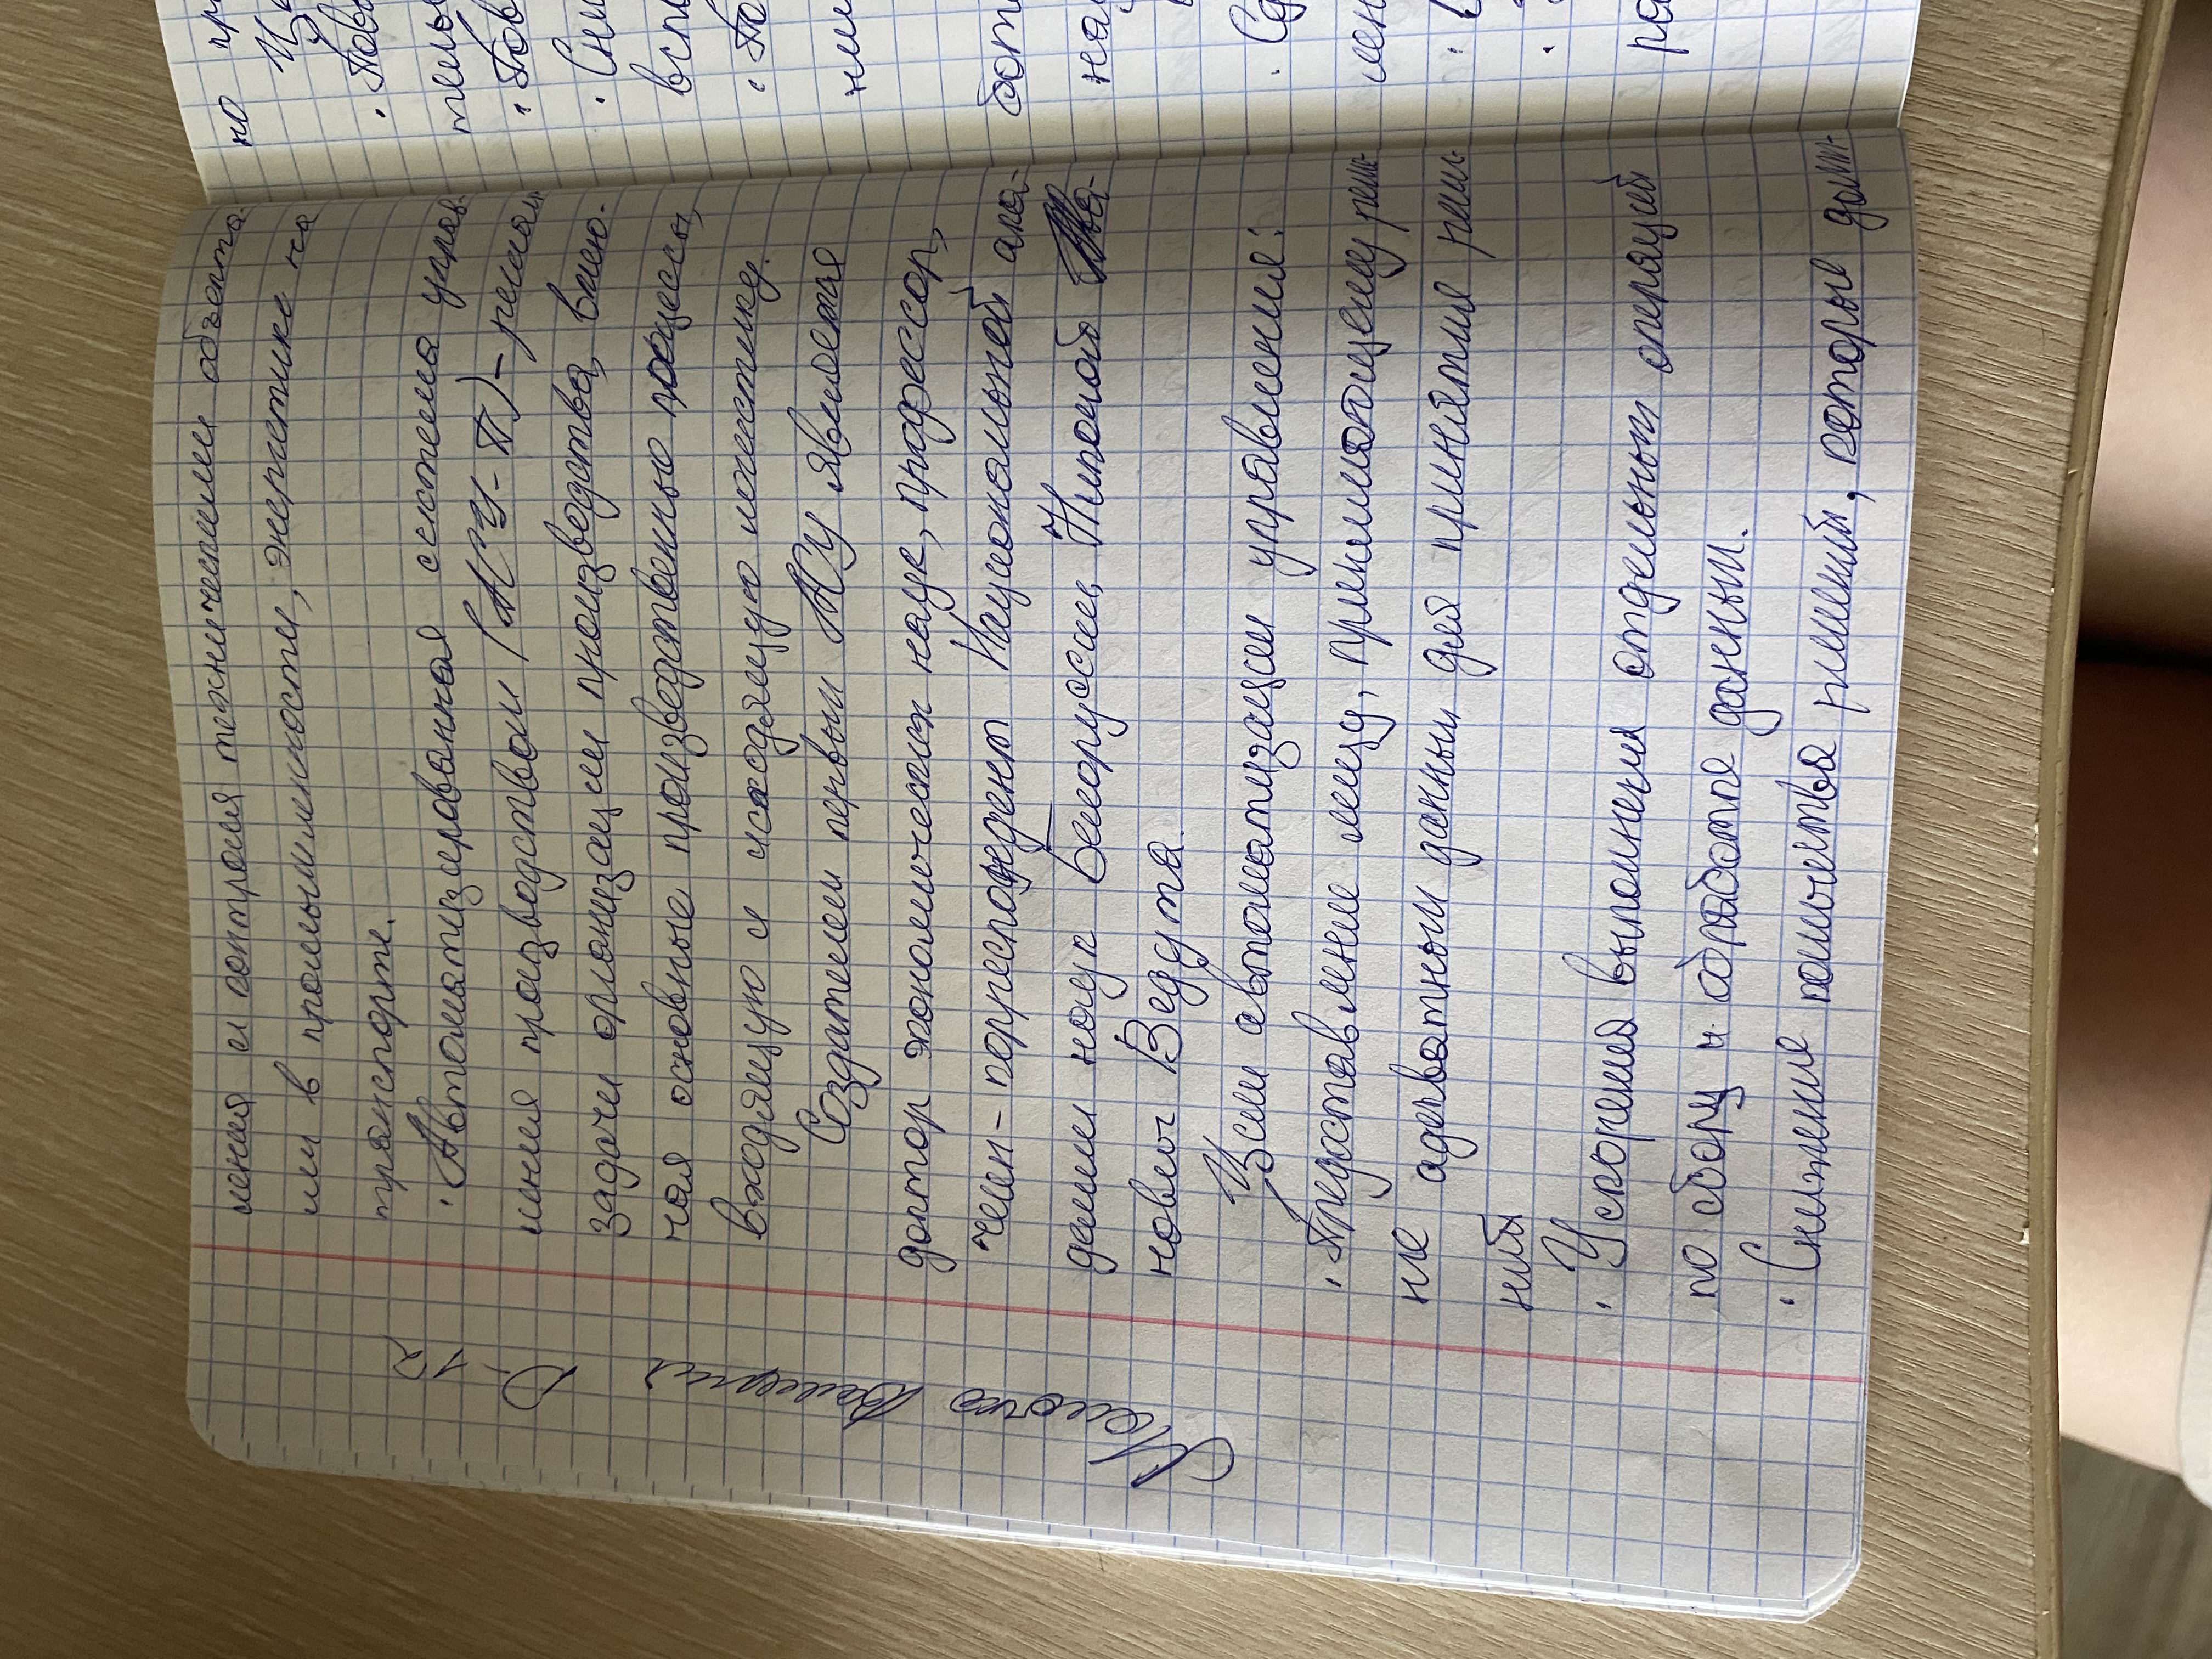 ления и контроля техническими объекта-
ми в промышленности, энергетике на
транспорте.
· Автоматизированная система управ-
ления производством (АСУ-П) - решая
задачи организации производства, вклю-
чая основные производственные процессы,
входящую и исходящую логистику.
Создателем первых АСУ является
доктор экономических наук, профессор,
член-корреспондент Национальной ака-
демии наук Белоруссии, Николай
нович Ведута.
Цели автоматизации управления:
· Предоставление лицу, принимающему реш-
не адекватных данных для принятия реше-
ний
· Ускорения выполнения отдельных операций
по сбору и обработке данных.
· Снижение количества решений, которые долж-
Валерия
12
но
· Пов
тель
· Пов
· Сни
всп
ни
бот
на
мен
ра